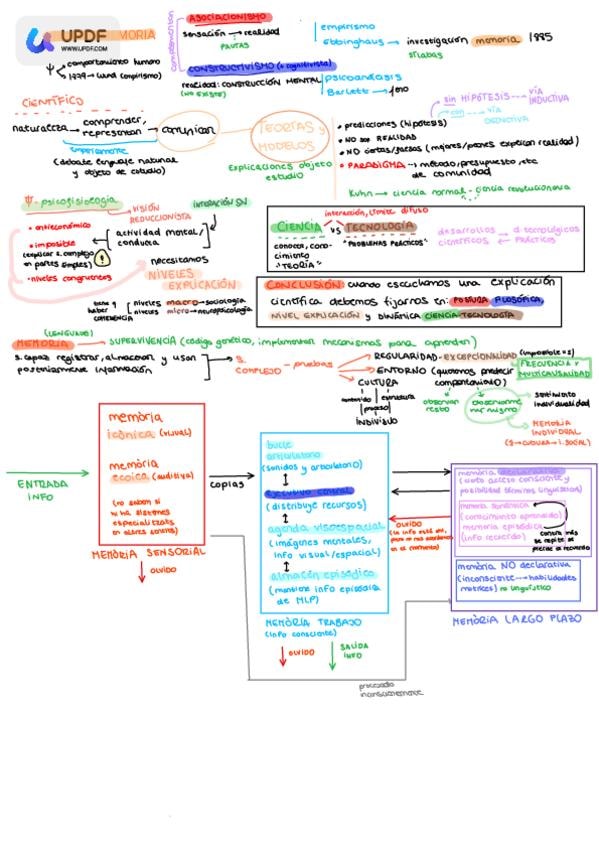 UPDF
WWW.UPDF.COM
MORIA
ASOCIACIONISMO
sensación → realidad
PAUTAS
empirismo
Ebbinghaus → investigación memoria 1885
sílabas
comportamiento humano
1879 → Wund (empirismo)
CONSTRUCTIVISMO (o cognitivista)
realidad: CONSTRUCCIÓN MENTAL
(NO EXISTE)
psicoanálisis
Barlett
CIENTÍFICO
naturaleza → comprender, representar → comunicar
empíricamente
(debate lenguaje natural y objeto de estudio)
TEORÍAS y MODELOS
Explicaciones objeto estudio
sin HIPÓTESIS → VÍA INDUCTIVA
con → VÍA DEDUCTIVA
• predicciones (hipótesis)
• NO son REALIDAD
• NO ciertas/falsas (mejores/peores explican realidad)
• PARADIGMA → método, presupuesto, etc de comunidad
Kuhn → ciencia normal - ciencia revolucionaria
Ψ - psicofisiología
VISIÓN REDUCCIONISTA
INTERACCIÓN SN
• antieconómico
• imposible
(explicar s. complejo en partes simples)
• niveles congruentes
actividad mental/conducta
necesitamos
NIVELES EXPLICACIÓN
tiene q haber COHERENCIA
niveles macro → sociología
niveles micro → neuropsicología
interacción, límite difuso
CIENCIA VS TECNOLOGÍA
conocer, conocimiento "TEORÍA"
"PROBLEMAS PRÁCTICOS"
desarrollos científicos
d tecnológicos prácticos
CONCLUSIÓN: cuando escuchamos una explicación
científica debemos fijarnos en: POSTURA FILOSÓFICA,
NIVEL EXPLICACIÓN y DINÁMICA CIENCIA TECNOLOGÍA
(LENGUAJE)
MEMORIA → SUPERVIVENCIA (código genético, implementar mecanismos para aprender)
s. capaz registrar, almacenar y usar posteriormente información
S. COMPLEJO - pruebas
REGULARIDAD - EXCEPCIONALIDAD (imposible = s)
FRECUENCIA y MULTICAUSALIDAD
ENTORNO (queremos predecir comportamiento)
CULTURA
contenido
estructura
proceso
INDIVIDUO
observar resto
observarme mi mismo
sentimiento individualidad
MEMORIA INDIVIDUAL
ENTRADA INFO
memòria icònica (visual)
memòria ecoica (auditiva)
(no saben si
MEMÒRIA SENSORIAL
OLVIDO
copias
bucle articulatorio
(sonidos y articulatorio)
ejecutivo central
(distribuye recursos)
agenda visoespacial
(imágenes mentales, info visual/espacial)
almacén episódico
(mantiene info episódica de MLP)
MEMÒRIA TRABAJO
(info consciente)
OLVIDO
SALIDA INFO
OLVIDO
memòria declarativa
posibilidad términos lingüísticos)
memoria semántica
(conocimiento aprendido)
memoria episódica
(info recuerdo)
cuanta más se repite se pierde el recuerdo
memòria NO declarativa
(inconsciente → habilidades motrices) no lingüístico
MEMÒRIA LARGO PLAZO
procesado inconscientemente